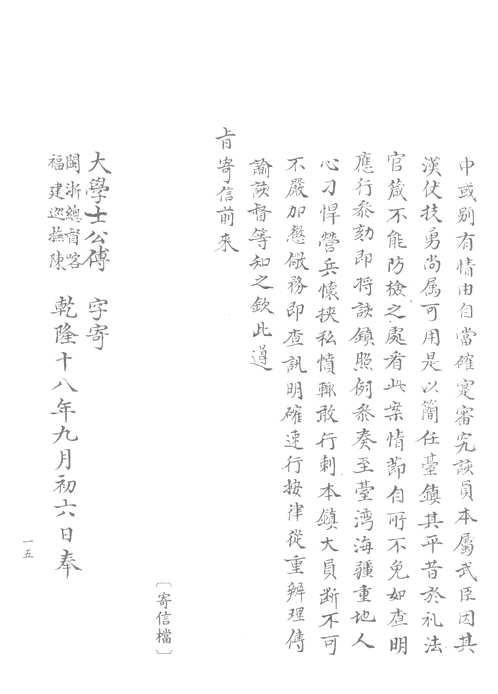 中或別有情由自當確定審究該員本屬武臣因其
漢仗技勇尚屬可用是以簡任臺鎮其平昔於礼法
官箴不能防檢之處看此案情節自所不免如查明
應行叅劾即將該鎮照例叅奏至臺湾海疆重地人
心刁悍營兵懷挾私憤輒敢行刺本鎮大員斷不可
不嚴加懲儆務即查訊明確速行按律從重辦理傳
諭該督等知之欽此遵
旨寄信前來
〔寄信檔〕
大學士公傅 字寄
閩浙總督喀
福建巡撫陳
乾隆十八年九月初六日奉
一五